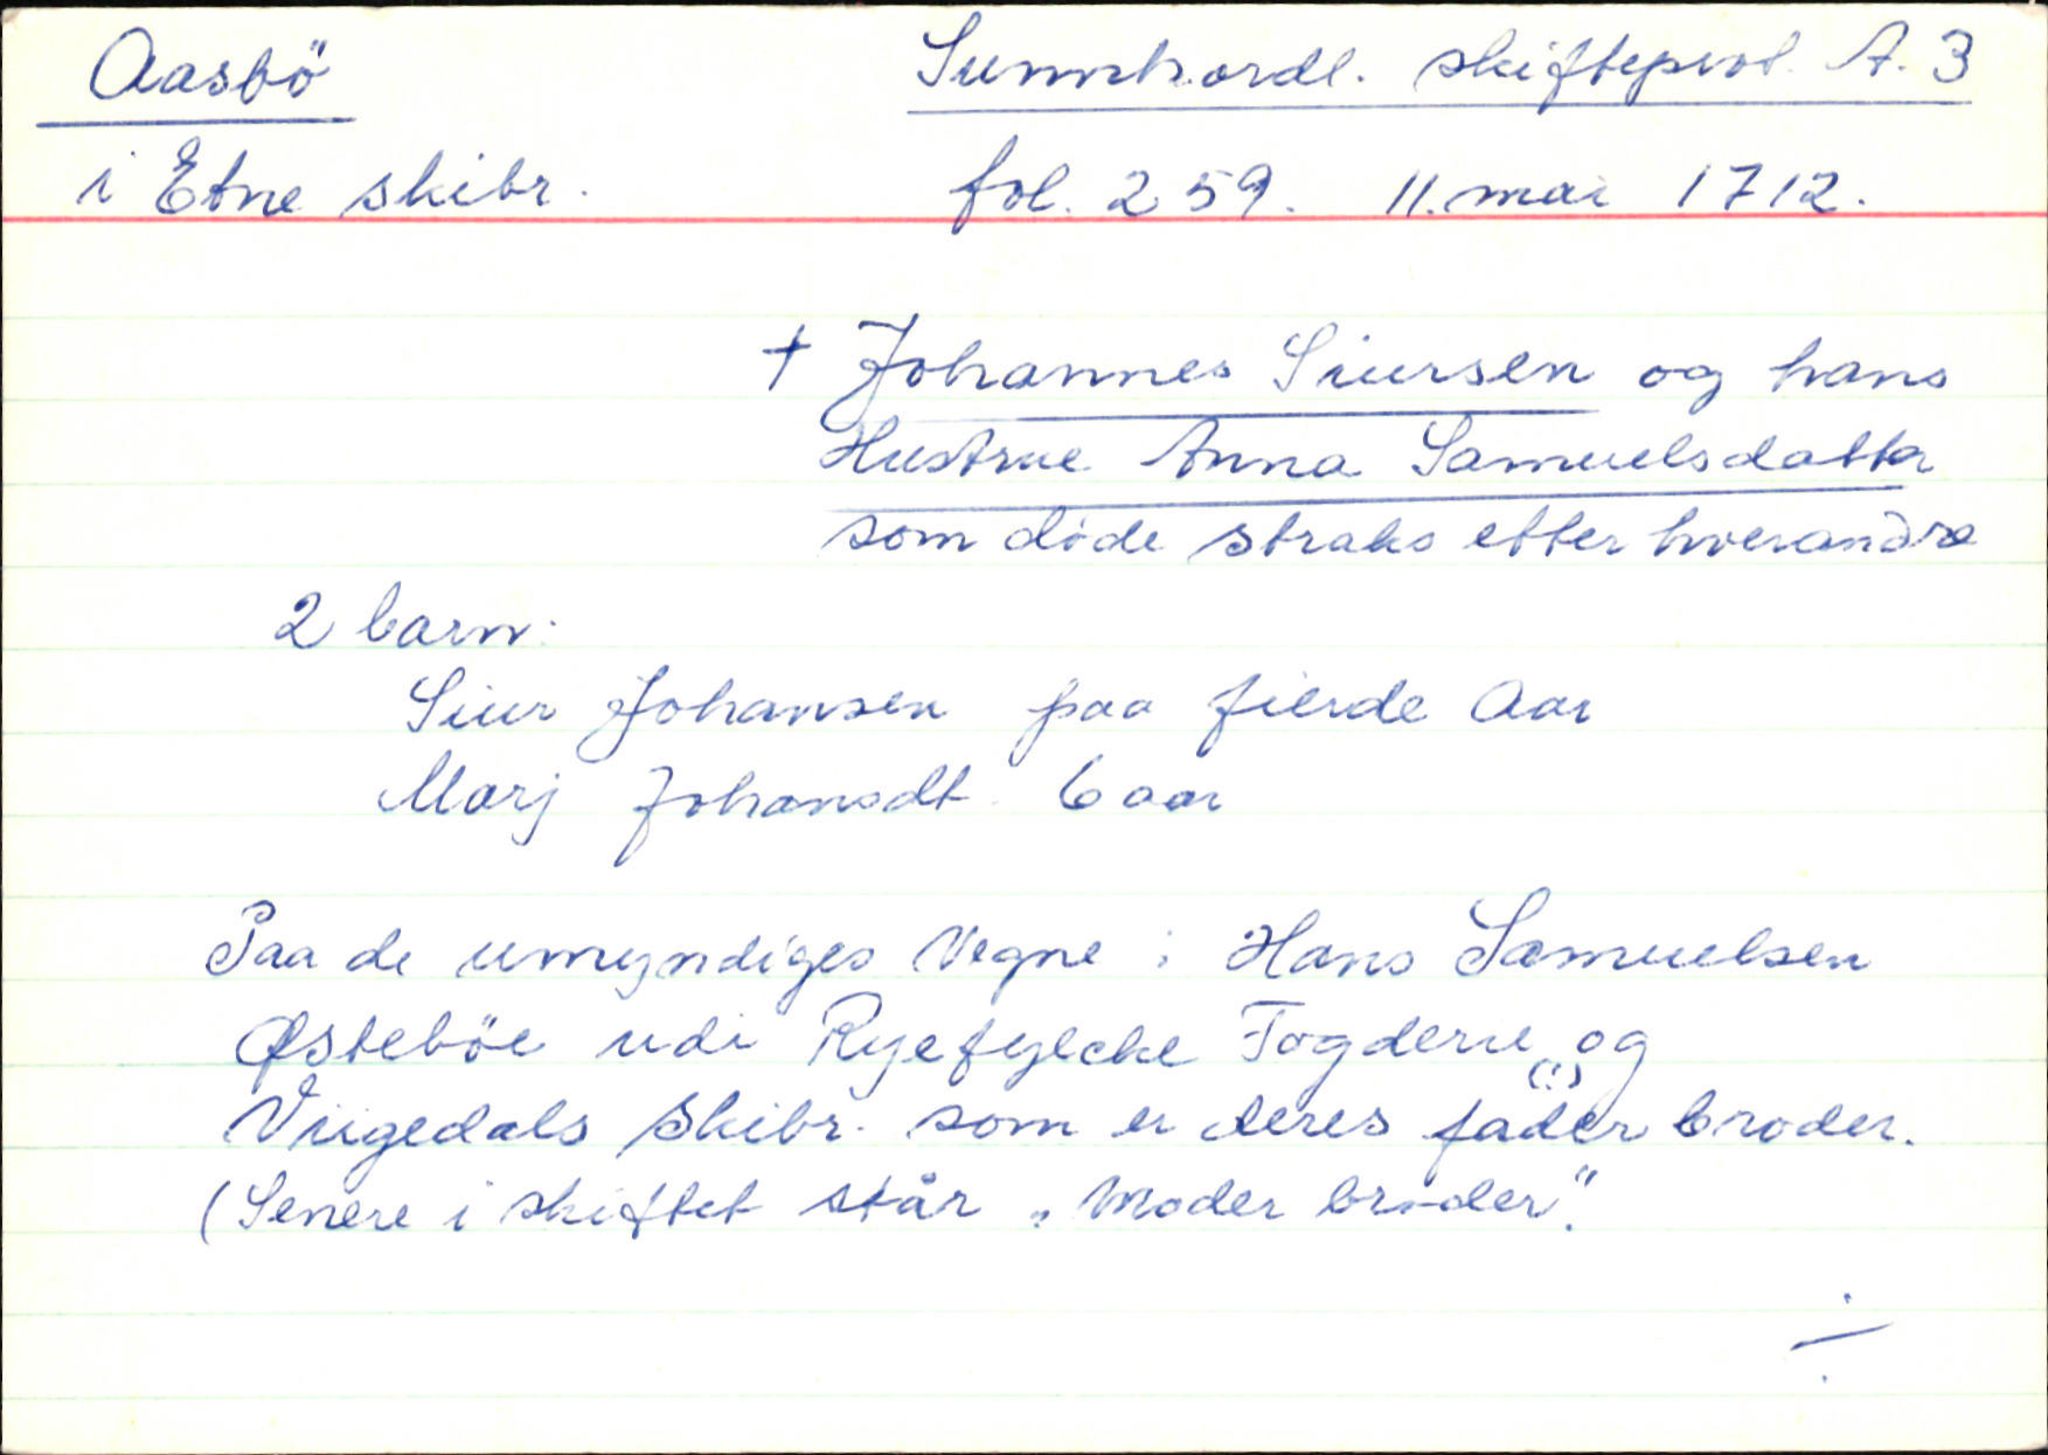 Aasbö
Sunnhordl. skifteprot. A. 3
i Etne skibr.
fol. 259. 11. mai 1712.
† Johannes Siursen og hans
Hustrue Anna Samuelsdatter
som døde straks etter hverandre
2 barn:
Siur Johansen paa fierde Aar
Marj Johansdt. 6 aar
Paa de umyndiges Vegne: Hans Samuelsen
Østeböe udi Ryefylcke Fogderie og
(!)
Viigedals Skibr. som er deres fader broder.
(Senere i skiftet står "Moder broder".